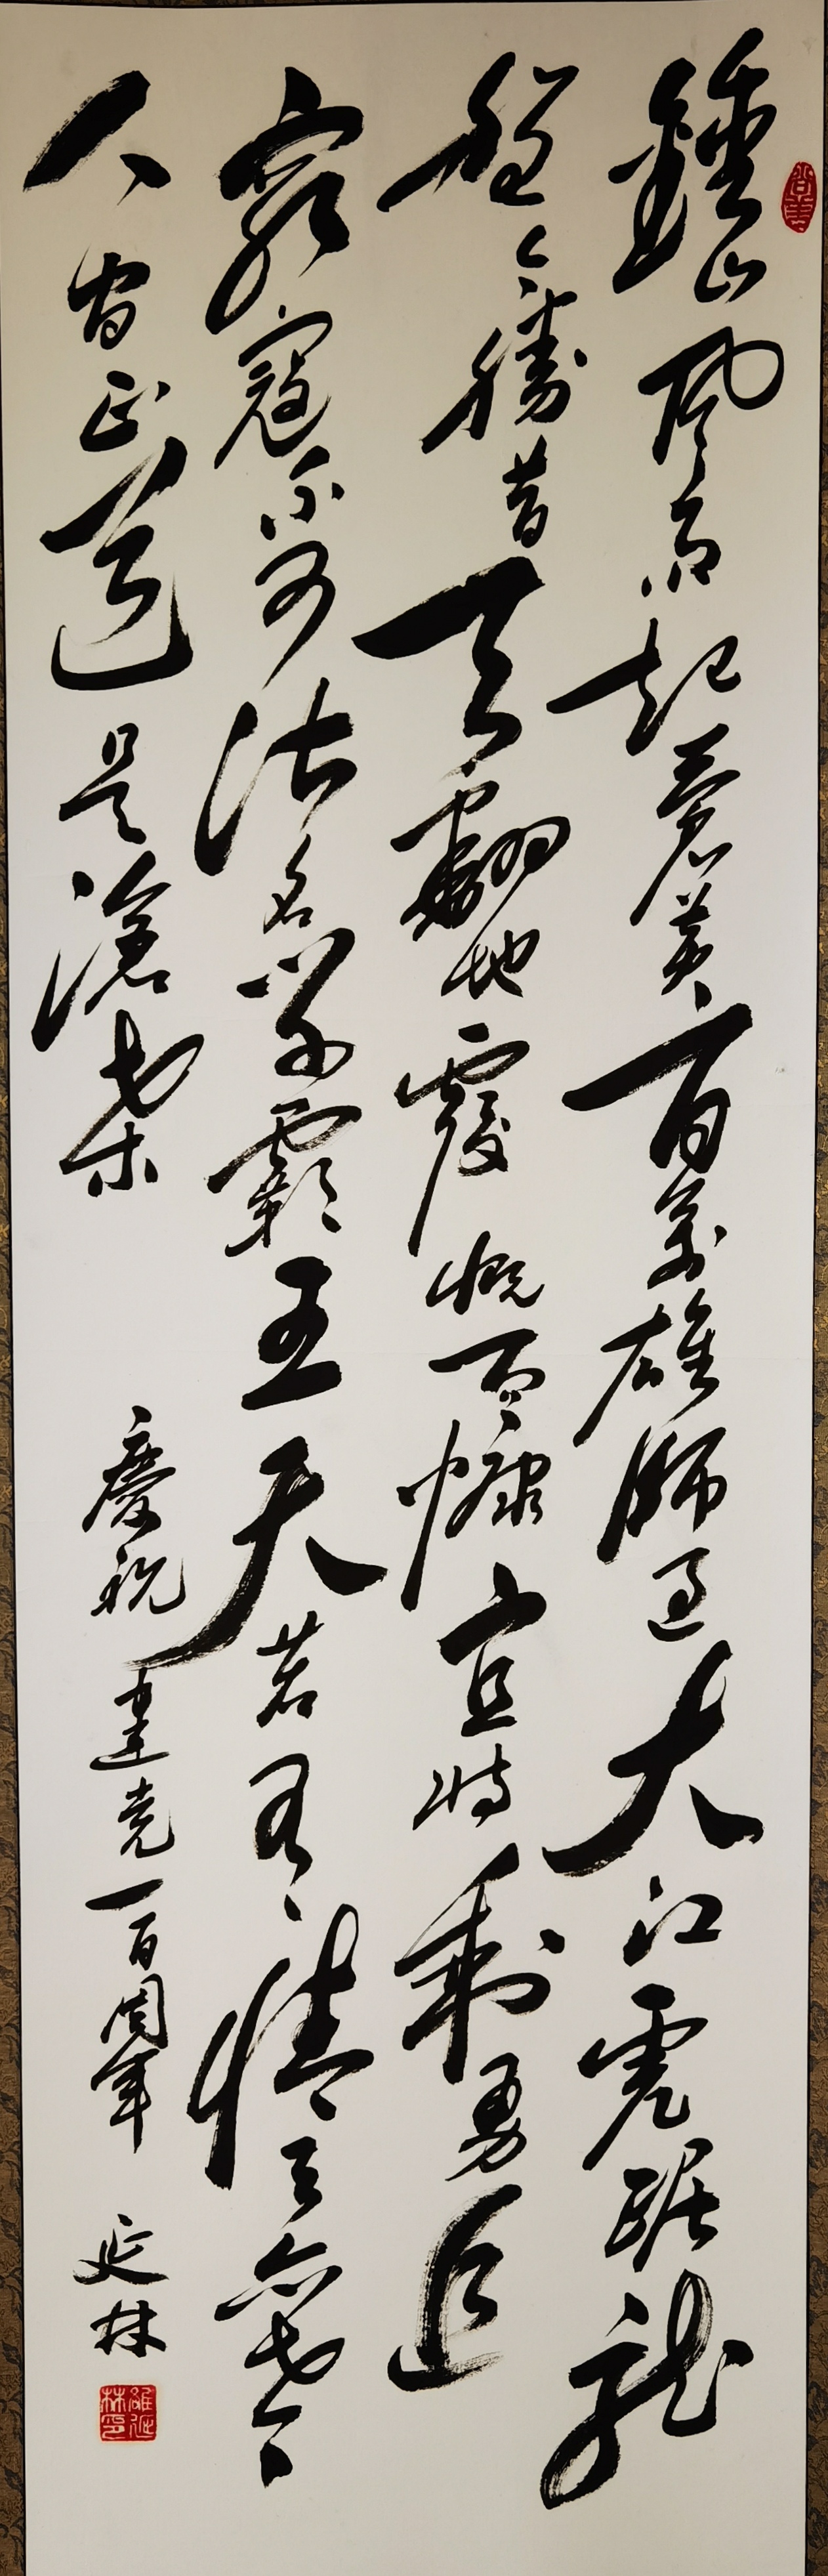 鍾山風雨起蒼黃百萬雄師過大江虎踞龍
盤今勝昔天翻地覆慨而慷宜將剩勇追
窮寇不可沽名學霸王天若有情天亦老
人間正道是滄桑
慶祝建党一百周年
延林